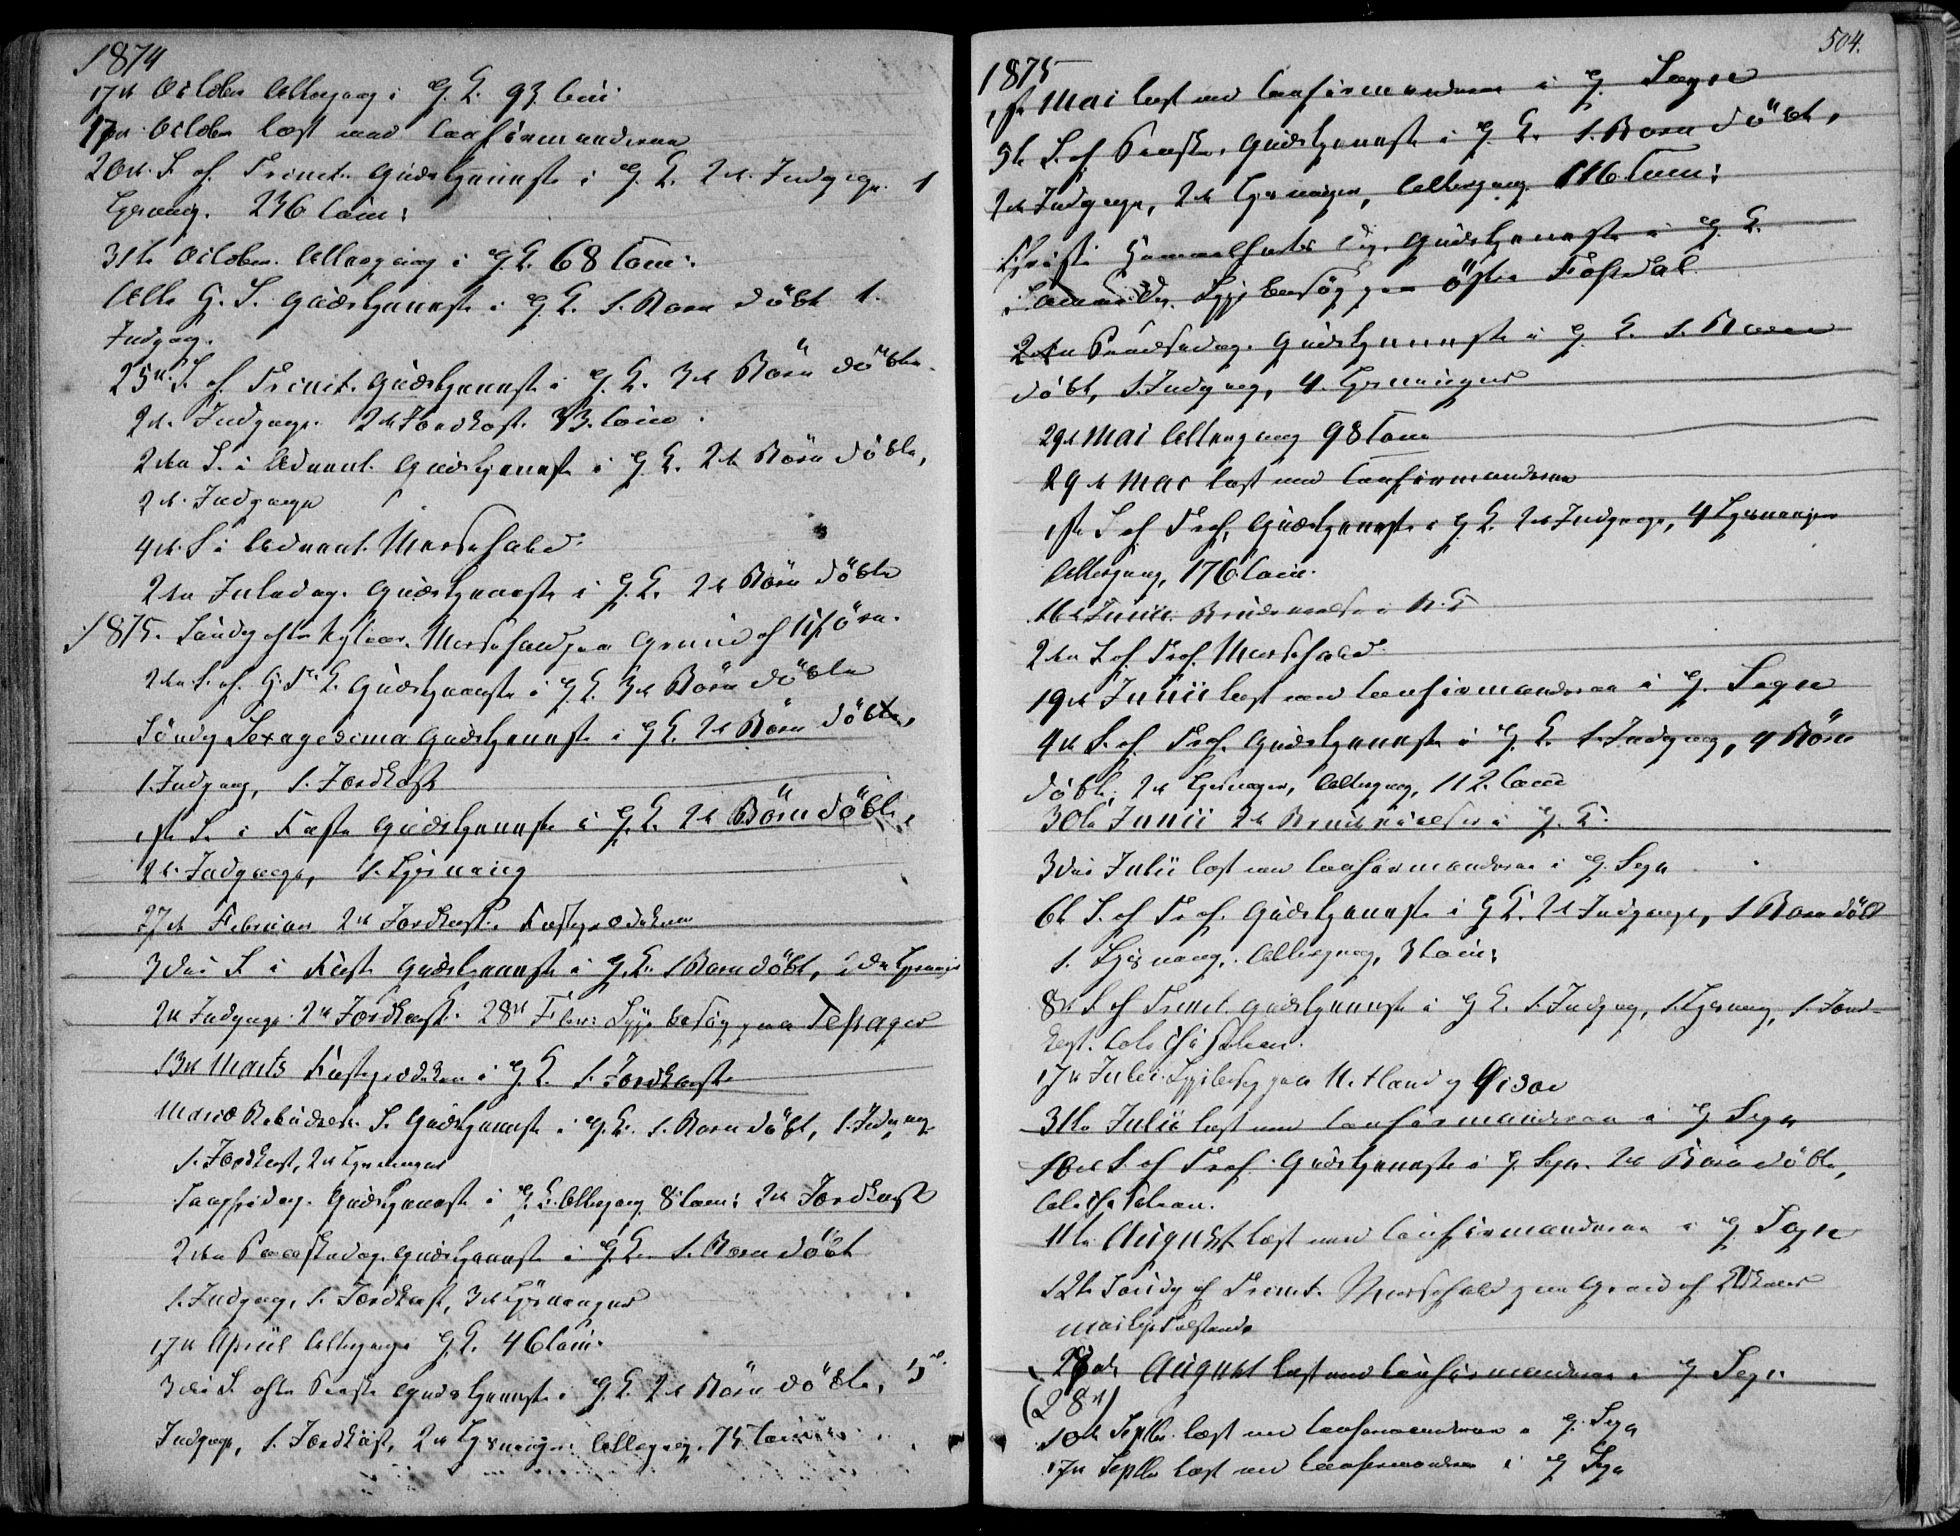 1874
17de October Altergang i G. K. 93 Com:
17de October læst med Confirmanderne
20de S. ef. Trinit. Gudstjeneste i G. K. 2de Indgange 1
Lysning. 236 Com:
31te October Altergang i G. K. 68 Com:
Alle H. S. Gudstjeneste i G. K. 1. Barn döbt 1.
Indgang.
25de S. ef. Trinit. Gudstjeneste i G. K. 3de Börn döbte
2de Indgange. 2de Jordkast. 83. Com:
2den S. i Advent. Gudstjeneste i G. K. 2de Börn döbte,
2de Indgange
4de S. i Advent. Messefald.
2den Juledag. Gudstjeneste i G. K. 2de Börn döbte
1875. Söndag efter Nytaar. Messefald paa Grund af
2den S. ef. H. Tr. K. Gudstjeneste i G. K. 3de Börn döbte
Söndag Sexagesima Gudstjeneste i G. K. 2de Börn döbte,
1. Indgang, 1. Jordkast
1ste S. i Faste Gudstjeneste i G. K. 2de Börn döbte,
2de Indgange, 1. Lysning
27de Februar 2de Jordkast. Fasteprædiken
3die S. i Faste Gudstjeneste i G. K. 1 Barn döbt, 2de Lysninger
2de Indgange 2de Jordkast. 28de Febr: Sygebesög paa
13de Marts Fasteprædiken i G. K. 1. Jordkast
Mariæ Bebudelses S. Gudstjeneste i G. K. 1. Barn döbt, 1. Indgang
1. Jordkast, 2de Lysninger
Langfredag. Gudstjeneste i G. K. Altergang 8 Com: 2de Jordkast
2den Paaskedag. Gudstjeneste i G. K. 1. Barn döbt
1. Indgang, 1. Jordkast, 3de Lysninger
17de April Altergang i G. K. 46 Com:
3die S. efter Paaske Gudstjeneste i G. K. 2de Börn döbte,
Indgange, 1. Jordkast, 2de Lysninger Altergang. 75 Com:
504.
1875
1ste Mai læst med Confirmanderne i G. Sogn
5te S. ef. Paaske. Gudstjeneste i G. K. 1. Barn döbt,
2de Indgange, 2de Lysninger, Altergang 116 Com:
Christi Himmelfarts Dag. Gudstjeneste i G. K.
samme Dag. Sygebesög paa östre
2den Pindsedag. Gudstjeneste i G. K. 1. Barn
döbt, 1. Indgang, 4. Lysninger
29de Mai Altergang 98 Com
29de Mai læst med Confirmanderne
1ste S. ef Tref. Gudstjeneste i G. K. 2de Indgange, 4 Lysninger
Altergang, 176 Com:
16de Junii. Brudevielse i N. K
2den S. ef. Tref. Messefald.
19de Junii læst med Confirmanderne i G. Sogn
4de S. ef. Tref. Gudstjeneste i G. K. 1. Indgang, 4 Börn
döbte, 2de Lysninger, Altergang, 112. Com:
30te Junii 2de Brudevielser i G. K.
3die Julii læst med Confirmanderne i G. Sogn
6te S. ef Tref. Gudstjeneste i G. K. 2de Indgange, 1 Barn döbt
1. Lysning, Altergang, 3 Com:
8de S. ef Trinit. Gudstjeneste i G. K. 1. Indgang, 1. Lysning, 1. Jord-
kast.
17de Julii. Sygebesög paa
31te Julii læst med Confirmanderne i G Sogn
10de S. ef Tref. Gudstjeneste i G. Sogn. 2de Börn döbte,
11te August læst med Confirmanderne i G Sogn
12te Söndag ef Trinit. Messefald paa Grund af
28de August læst med Confirmanderne i G. Sogn
(28de)
10de Septbr læst med Confirmanderne i G. Sogn
17de Septbr læst med Confirmanderne i G Sogn